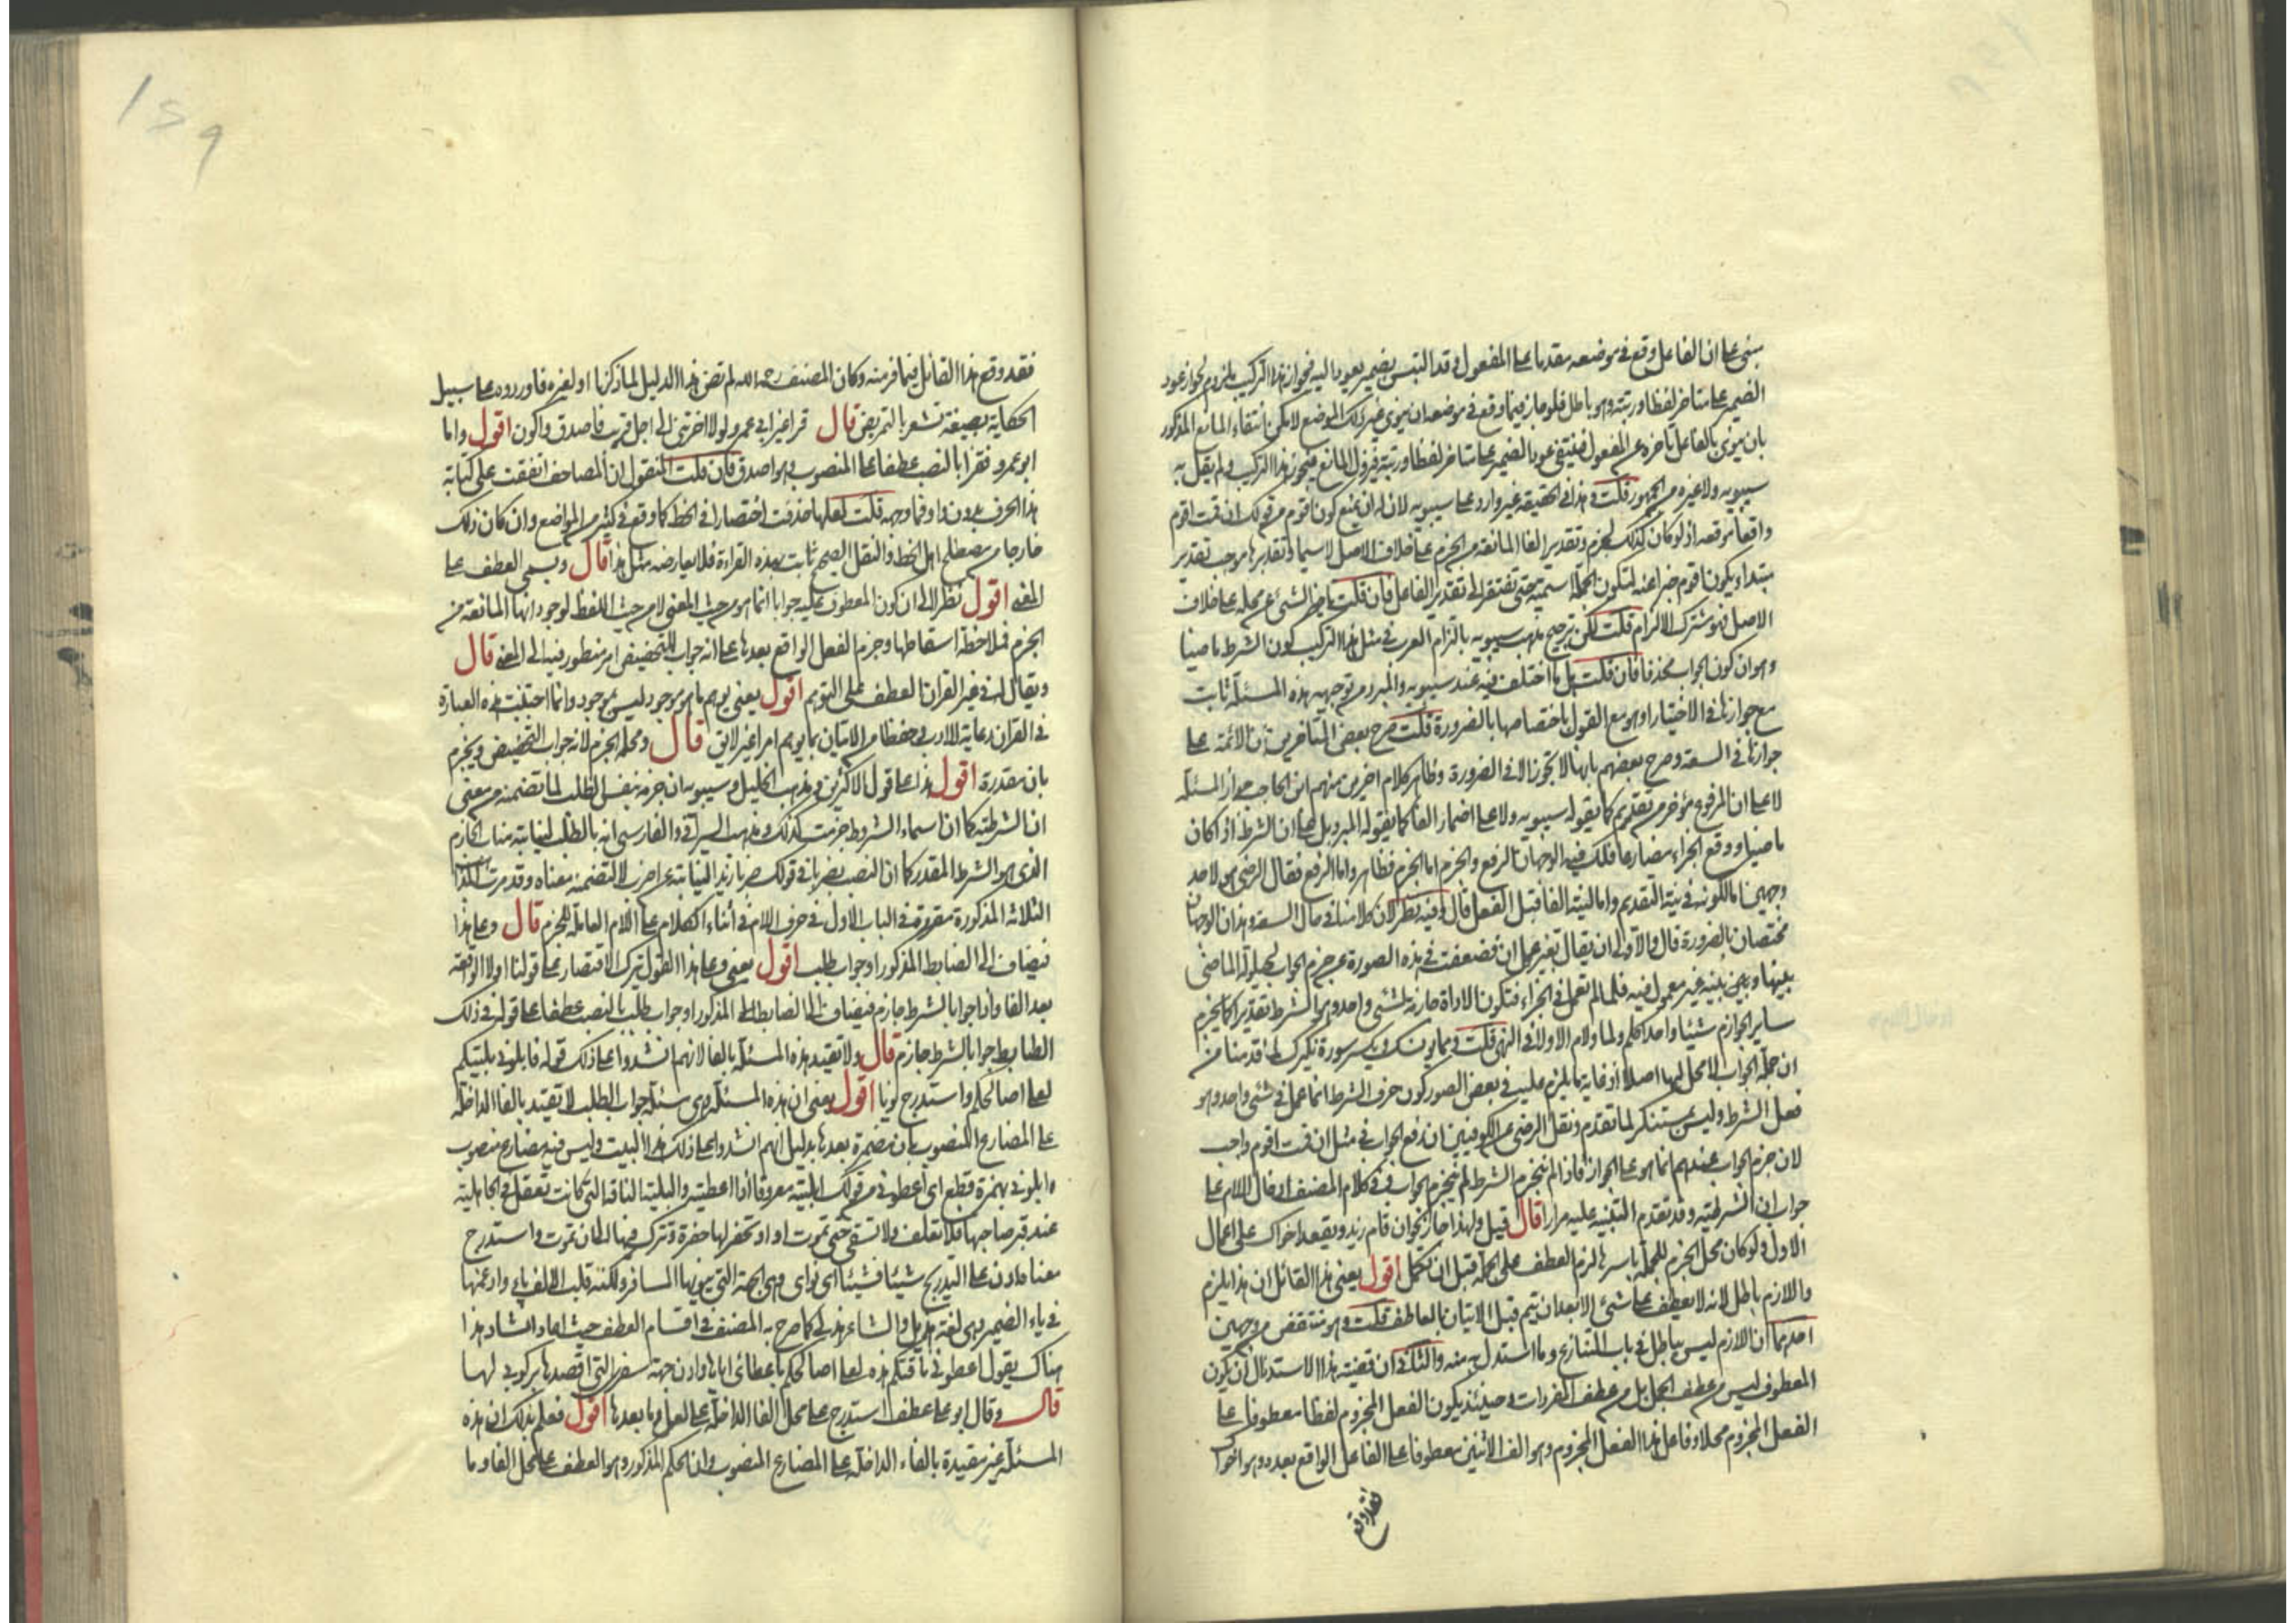 مبنى على ان الفاعل وقع في موضعه مقدما على المفعول وقد التبس بضمير يعود اليه فجواز هذا التركيب ملزوم لجواز عود
الضمير على متاخر لفظا ورتبة وهو باطل فلو جاز فيما وقع في موضعه ان ينوى غير ذلك الموضع لامكن انتفاء المانع المذكور
بان ينوى بالفاعل تاخره عن المفعول فينتفى عود الضمير على متاخر لفظا ورتبة فيزول المانع فيجوز هذا التركيب ولم يقل به
سيبويه ولا غيره من الجمهور قلت وهذا في الحقيقة غير وارد على سيبويه لان له ان يمنع كون اقوم من قولك ان قمت اقوم
واقعا موقعه اذ لو كان كذلك لجزم وتقدير الفا المانعة من الجزم على خلاف الاصل لا سيما وتقديرها موجب تقدير
مبتدا ويكون اقوم خبرا عنه لتكون الجملة اسمية حتى تفتقر الى تقدير الفا فان قلت تاخير الشئ عن محله على خلاف
الاصل فهو مشترك الالزام قلت لكن ترجيح مذهب سيبويه بالتزام العرب في مثل هذا التركيب كون الشرط ماضيا
وهو ان كون الجواب محذوفا فان قلت هل ما اختلف فيه عند سيبويه والمبرد من توجيه هذه المسئلة ثابت
مع جوازها في الاختيار او هو مع القول باختصاصها بالضرورة قلت صرح بعض المتاخرين من الائمة على
جوازها في السعة وصرح بعضهم بانها لا تجوز الا في الضرورة وظاهر كلام اخرين منهم ابن الحاجب جواز المسئلة
لا على ان المرفوع مؤخر من تقديم كما يقوله سيبويه ولا على اضمار الفا كما يقوله المبرد بل على ان الشرط اذا كان
ماضيا ووقع الجزاء مضارعا فلك فيه الوجهان الرفع والجزم اما الجزم فظاهر واما الرفع فقال الرضى هو لاحد
وجهين اما لكونه في نية التقديم واما لنية الفا قبل الفعل قال وفيه نظر لان كلامنا في حال السعة وهذان الوجهان
مختصان بالضرورة قال والاولى ان يقال تغير عمل ان فضعفت في هذه الصورة عن جزم الجواب لحيلولة الماضى
بينها وبينه غير معمول فيه فلما لم تعمل في الجزاء فتكون الاداة جازمة لشئ واحد وهو الشرط تقديرا كما يجزم
ساير الجوازم شيئا واحدا كلم ولما ولام الامر ولا في النهى قلت ومما يكسر سورة نكيرك لما قدمنا من
ان جملة الجواب لا محل لها اصلا اذ غاية ما يلزم عليه في بعض الصور كون حرف الشرط انما عمل في شئ واحد وهو
فعل الشرط وليس بمستنكر لما تقدم ونقل الرضى عن الكوفيين ان رفع الجواب في مثل ان قمت اقوم واجب
لان جزم الجواب عندهم انما هو على الجوار فاذا لم ينجزم الشرط لم ينجزم الجواب وفي كلام المصنف ادخال اللام على
جواب ان الشرطية وقد تقدم التنبيه عليه مرارا قال قيل ولهذا جاز نحو ان قام زيد ويقعد اخواك على اعمال
الاول ولو كان محل الجزم للجملة باسرها لزم العطف على الجملة قبل ان تكمل اقول يعنى هذا القائل ان هذا يلزم
واللازم باطل لانه لا يعطف على شئ الا بعد ان يتم قبل الاتيان بالعاطف قلت وهو منتقض من وجهين
احدهما ان اللازم ليس بباطل في باب التنازع وما استدل به منه والثانى ان قضية هذا الاستدلال ان يكون
المعطوف ليس من عطف الجمل بل من عطف المفردات وحينئذ يكون الفعل المجزوم لفظا معطوفا على
الفعل المجزوم محلا وفاعل هذا الفعل المجزوم وهو الف الاثنين معطوفا على الفاعل الواقع بعده وهو اخواك
فقد وقع
فقد وقع هذا القائل فيما فر منه وكان المصنف رحمه الله لم يرتض هذا الدليل لما ذكرنا او لغيره فاورده على سبيل
الحكاية بصيغة تشعر بالتمريض قال قرا غير ابي عمرو لولا اخرتنى الى اجل قريب فاصدق واكون اقول واما
ابو عمرو فقرا بالنصب عطفا على المنصوب وهو اصدق فان قلت المنقول ان المصاحف اتفقت على كتابة
هذا الحرف بدون واو فما وجهه قلت لعلها حذفت اختصارا في الخط كما وقع في كثير من المواضع وان كان ذلك
خارجا من مصطلح اهل الخط والنقل الصحيح ثابت بهذه القراءة فلا يعارضه مثل هذا قال ويسمى العطف على
المعنى اقول نظرا الى ان كون المعطوف عليه جوابا انما هو من حيث المعنى لا من حيث اللفظ لوجود الفا المانعة من
الجزم فملاحظة اسقاطها وجزم الفعل الواقع بعدها على انه جواب للتحضيض امر منظور فيه الى المعنى قال
ويقال له في غير القران العطف على التوهم اقول يعنى يوهم ما هو موجود ليس بموجود وانما اجتنبت هذه العبارة
في القران رعاية للادب وحفظا من الاتيان بما يوهم امرا غير لايق قال ومحله الجزم لانه جواب التحضيض ويجزم
بان مقدرة اقول هذا على قول الاكثرين ومذهب الخليل وسيبويه ان جزمه بنفس الطلب لما تضمنه من معنى
ان الشرطية كما ان اسماء الشروط جزمت كذلك ومذهب السيرافى والفارسى انه بالطلب لنيابته مناب الجازم
الذى هو الشرط المقدر كما ان النصب بضربا في قولك ضربا زيدا لنيابته عن اضرب لا لتضمنه معناه وقد مرت المذاهب
الثلاثة المذكورة مقررة في الباب الاول في حرف اللام في اثناء الكلام على اللام العاملة للجزم قال وعلى هذا
فيضاف الى الضابط المذكور او جواب طلب اقول يعنى وعلى هذا القول يترك الاقتصار على قولنا اولا الواقعة
بعد الفا واذا جوابا لشرط جازم فيضاف الى الضابط المذكور او جواب طلب بالنصب عطفا على قوله في ذلك
الضابط جوابا لشرط جازم قال ولا تقيد هذه المسئلة بالفا لانهم انشدوا على ذلك قوله فابلونى بليتكم
لعلى اصالحكم واستدرج نويا اقول يعنى ان هذه المسئلة وهى مسئلة جواب الطلب لا تقيد بالفا الداخلة
على المضارع المنصوب بان مضمرة بعدها بدليل انهم انشدوا على ذلك هذا البيت وليس فيه مضارع منصوب
وابلونى بهمزة قطع اى اعطونى من قولك ابليته معروفا اذا اعطيته والبلية الناقة التى كانت تعقل في الجاهلية
عند قبر صاحبها فلا تعلف ولا تسقى حتى تموت او او تحفر لها حفرة وتترك فيها الى ان تموت واستدرج
معناه ادن على التدريج شيئا فشيئا اى نواى وهى الجهة التى ينويها المسافر ولكنه قلب الالف ياء وادغمها
في ياء الضمير وهى لغة هذيل والشاعر هذلى كما صرح به المصنف في اقسام العطف حيث اعاد انشاد هذا
هناك يقول اعطونى ناقتكم هذه لعلى اصالحكم باعطائى اياها وادن جهة سفرى التى اقصدها بركوبى لها
قال وقال ابو على عطف استدرج على محل الفا الداخلة على لعلى وما بعدها اقول فعلم بذلك ان هذه
المسئلة غير مقيدة بالفاء الداخلة على المضارع المنصوب وان الحكم المذكور وهو العطف على محل الفا وما